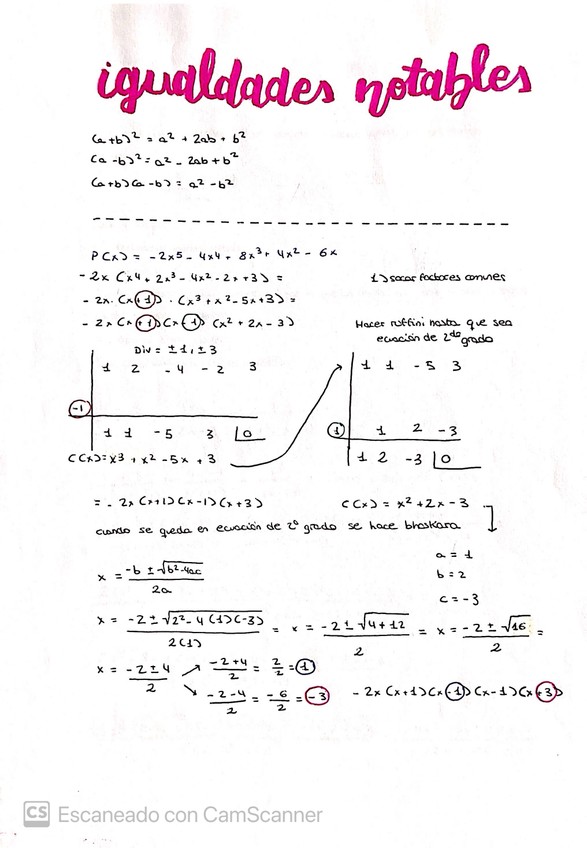 igualdades notables
(a+b)² = a² + 2ab + b²
(a-b)² = a² - 2ab + b²
(a+b)(a-b) = a² - b²
P(x) = -2x5 - 4x4 + 8x³ + 4x² - 6x
-2x (x4 + 2x³ - 4x² - 2x + 3) =
1) sacar factores comunes
- 2x · (x+1) · (x³ + x² - 5x + 3) =
- 2x (x+1)(x-1) (x² + 2x - 3)
Hacer ruffini hasta que sea
ecuación de 2do grado
Div = ±1, ±3
1 2 -4 -2 3
-1
1 1 -5 3 0
C(x) = x³ + x² - 5x + 3
1 1 -5 3
1 1 2 -3
1 2 -3 0
= - 2x (x+1)(x-1)(x+3)
C(x) = x² + 2x - 3
cuando se queda en ecuación de 2º grado se hace bhaskara
a = 1
b = 2
c = -3
x = -b ± √b²-4ac / 2a
x = -2 ± √2² - 4(1)(-3) / 2(1) = x = -2 ± √4+12 / 2 = x = -2 ± √16 / 2 =
x = -2 ± 4 / 2
-2+4 / 2 = 2/2 = 1
-2-4 / 2 = -6/2 = -3
- 2x (x+1)(x-1)(x-1)(x+3)
CS Escaneado con CamScanner